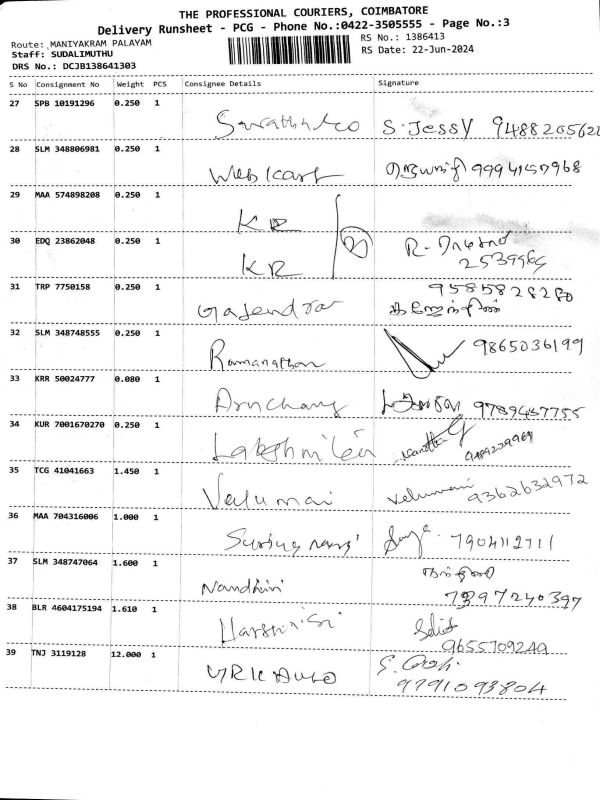 THE PROFESSIONAL COURIERS, COIMBATORE
Delivery Runsheet - PCG - Phone No.:0422-3505555 - Page No.:3
Route: MANIYAKRAM PALAYAM
RS No.: 1386413
Staff: SUDALIMUTHU
RS Date: 22-Jun-2024
DRS No.: DCJB138641303
S No Consignment No Weight PCS Consignee Details Signature
27 SPB 10191296 0.250 1
S. Jessy 9488205620
28 SLM 348806981 0.250 1
Webkart 9994157968
29 MAA 574898208 0.250 1
KR
30 EDQ 23862048 0.250 1
KR 2539964
31 TRP 7750158 0.250 1
9585828280
Gajendran கஜேந்திரன்
32 SLM 348748555 0.250 1
Ramanathan 9865036199
33 KRR 50024777 0.080 1
Arnchang 9789457755
34 KUR 7001670270 0.250 1
Lakshmi 9489229969
35 TCG 41041663 1.450 1
Velumai Velumani 9362632972
36 MAA 704316006 1.000 1
Surya 7904112711
37 SLM 348747064 1.600 1
நந்தினி
Nandhini 7397240397
38 BLR 4604175194 1.610 1
Harshini Sri
9655709249
39 TNJ 3119128 12.000 1
VRK Auto
9791093804